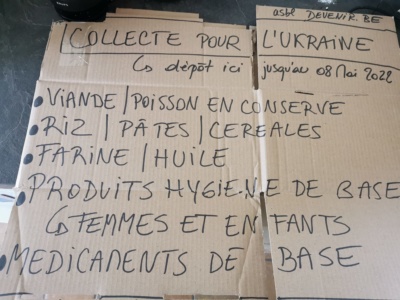 asbl DEVENIR BE
COLLECTE POUR L'UKRAINE
↳ dépôt ici jusqu'au 08 Mai 2022
• VIANDE / POISSON EN CONSERVE
• RIZ / PÂTES / CEREALES
• FARINE / HUILE
• PRODUITS HYGIENE DE BASE
↳ FEMMES ET ENFANTS
• MEDICAMENTS DE BASE